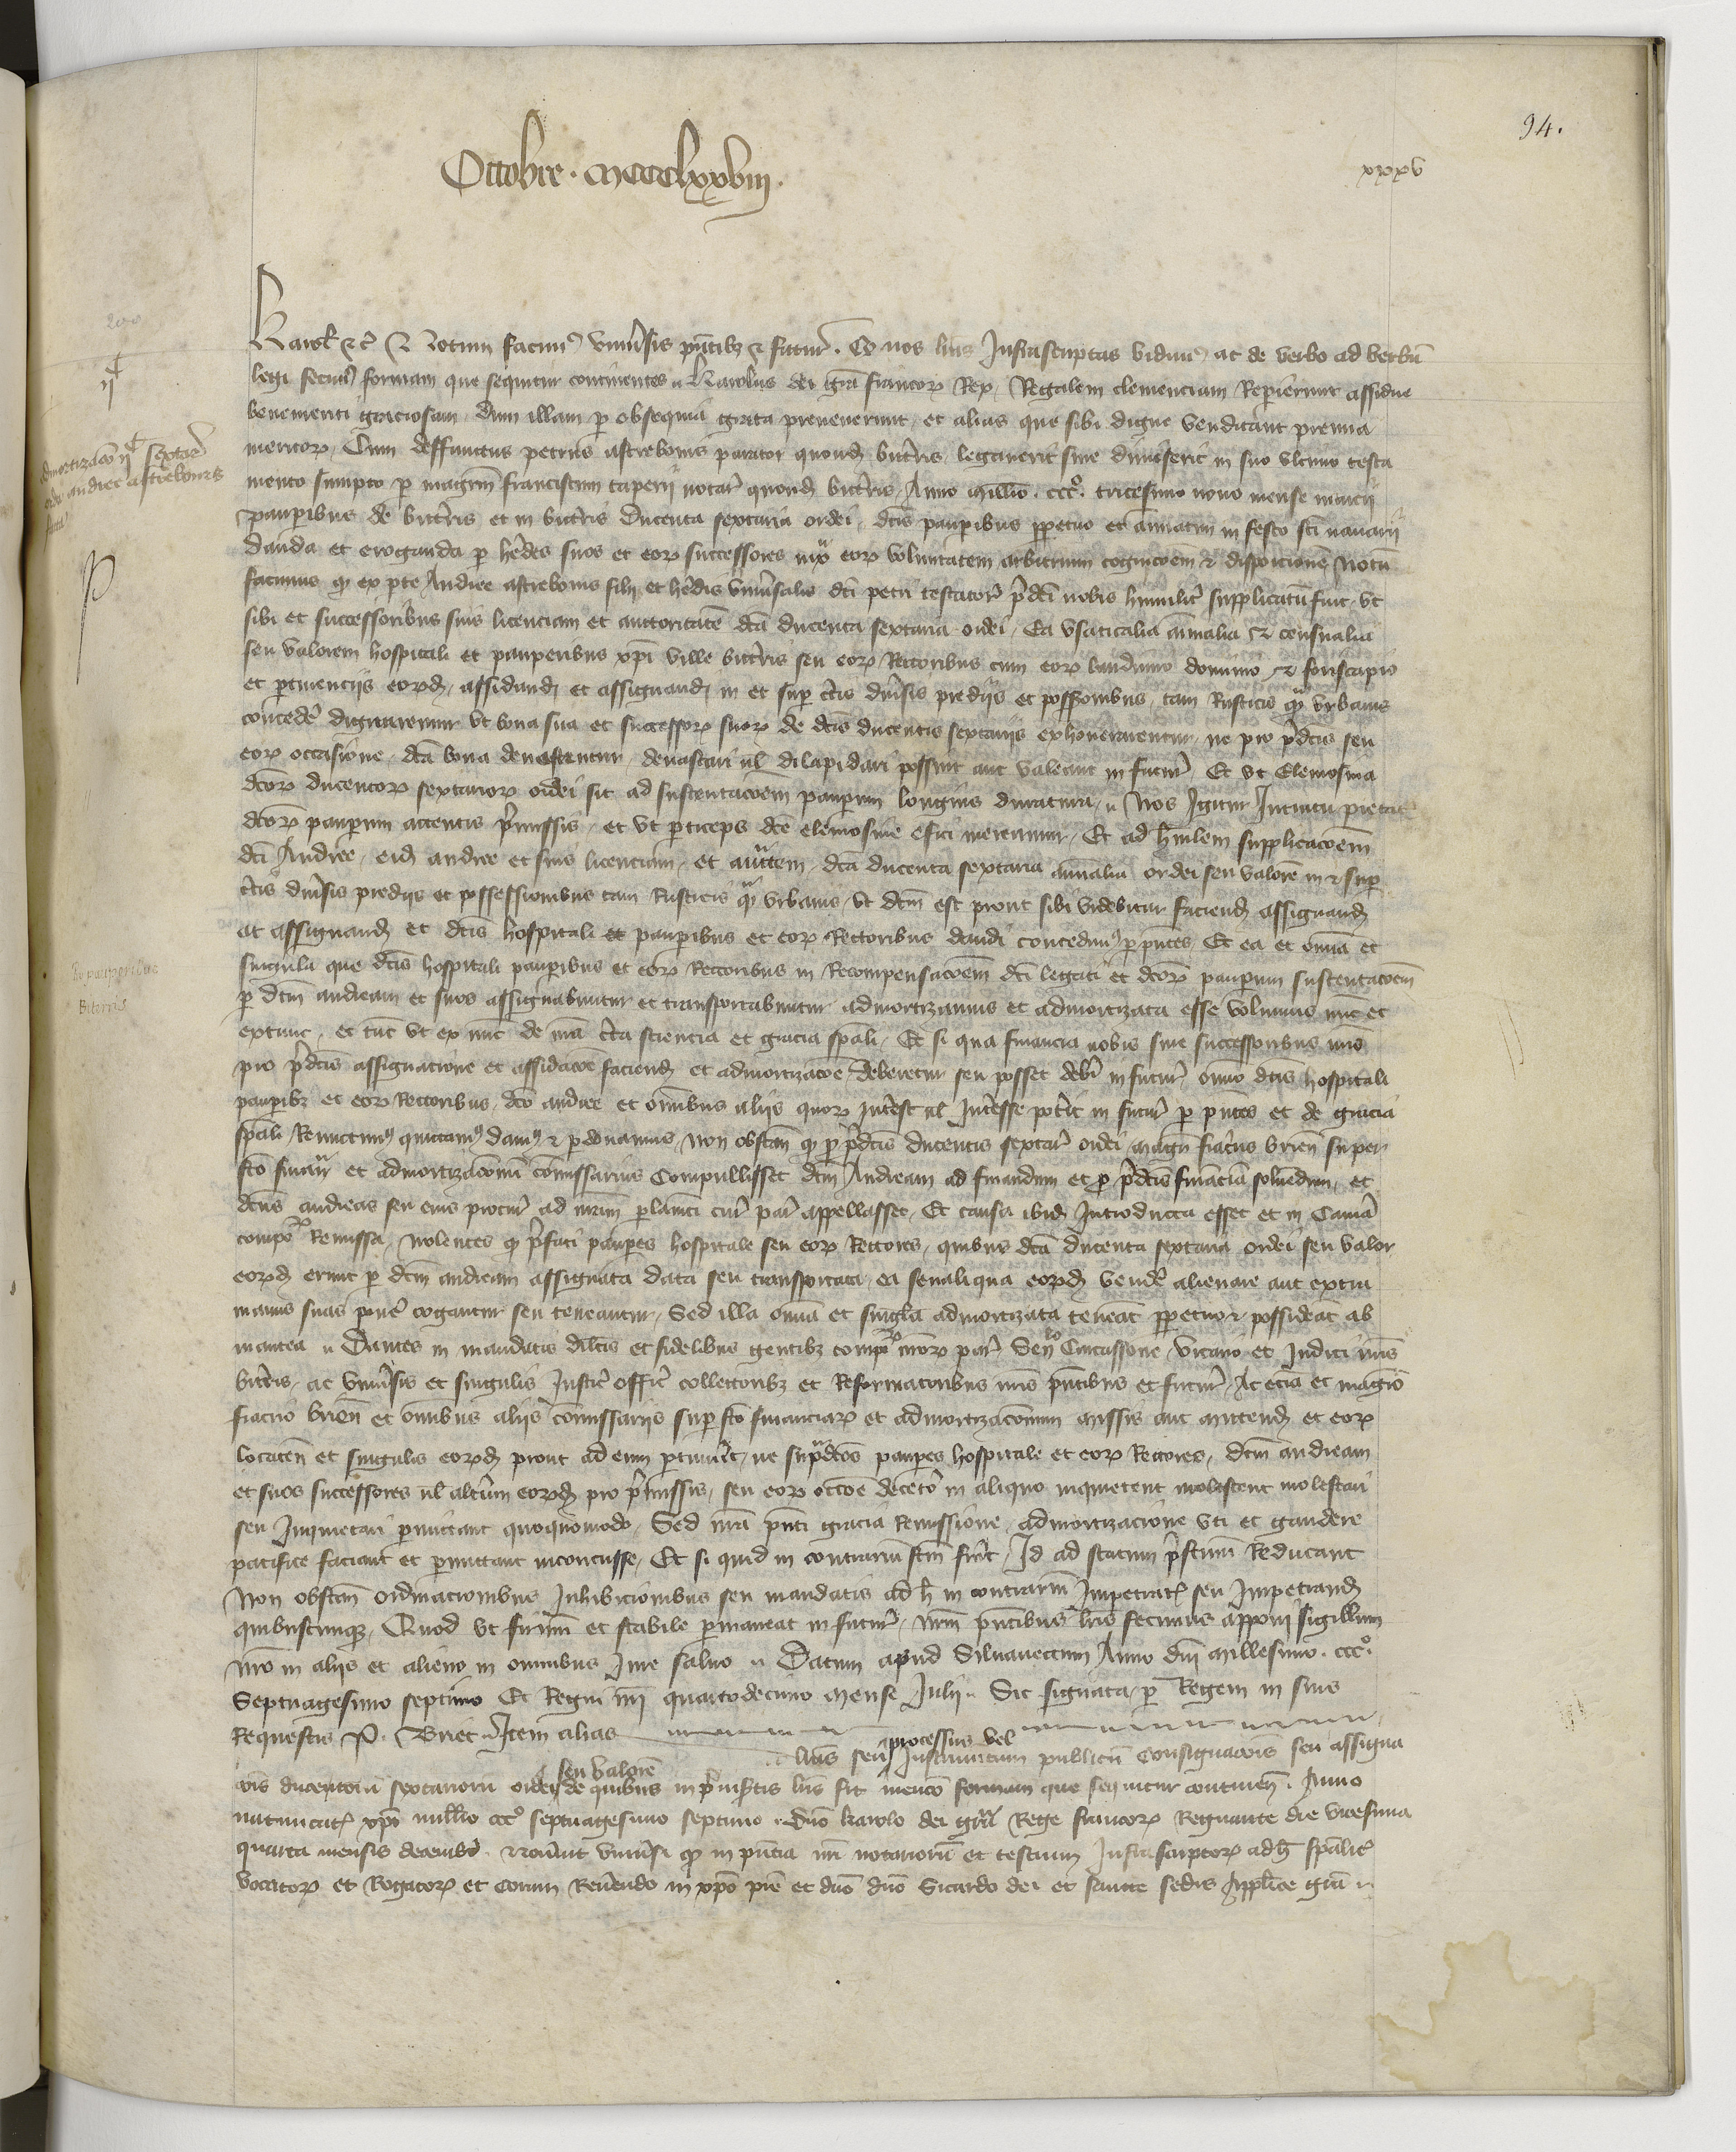 94.
Octobre. mccclxxviii.
xxxv
200
ijc
admortizacio ijc sextar
ordei andree astrebonis
facta
Karolus etc. Notum facimus universis presentibus et futuris. Quod nos litteras Infrascriptas vidimus ac de verbo ad verbum
legi fecimus formam que sequitur continentes. Karolus dei gracia francorum Rex. Regalem clemenciam Repperierunt assidue
benemeriti graciosam dum illam per obsequia grata prevenerunt, et alias que sibi digne vendicant premia
meritorum, Cum deffunctus petrus astrebonis parator quondam bitterris legaverit sive dimiserit in suo ultimo testa
mento sumpto per magistrum franciscum taperii notarium quondam bitterris, Anno millesimo. ccco. tricesimo nono mense marcii
pauperibus de bitterris et in bitterris ducenta sextaria ordei, dictis pauperibus perpetuo et annuatim in festo sancti nazarii
danda et eroganda per heredes suos et eorum successores juxta eorum voluntatem arbitrium cognicionem et disposicionem Notum
facimus quod ex parte Andree astrebonis filii et heredis universalis dicti petri testatoris predicti nobis humiliter supplicatum fuit, ut
sibi et successoribus suis licenciam et auctoritatem dicta ducenta sextaria ordei, Ea usaticalia annalia et censualia
seu valorem hospitali et pauperibus christi ville bitterris seu eorum Rectoribus cum eorum laudimio dominio et foriscapio
et pertinenciis eorumdem, assidendi et assignandi in et super certis diversis prediis et possessionibus, tam Rusticis quam urbanis
concedere dignaremur ut bona sua et successorum suorum de dictis ducentis sextariis exhonerarentur, ne pro predictis seu
eorum occasione, dicta bona devastentur, devastari vel dilapidari possint aut valeant in futurum Et ut Elemosina
dictorum ducentorum sextariorum ordei sit ad sustentacionem pauperum longius duratura. Nos Igitur Intuitu pietatis
dictorum pauperum attentis premissis, et ut particeps dicte elemosine effici mereamur, Et ad humilem supplicacionem
dicti Andree, eidem andree et suis licenciam, et auctoritatem, dicta ducenta sextaria annalia ordei seu valorem in et super
certis diversis prediis et possessionibus tam Rusticis quam urbanis, ut dictum est prout sibi videbitur faciendum assignandi
ac assignandi et dictis hospitali et pauperibus et eorum Rectoribus dandi concedimus per presentes, Et ea et omnia et
singula que dictis hospitali pauperibus et eorum Rectoribus in Recompensacionem dicti legati et dictorum pauperum sustentacionem
per dictum andream et suos assignabuntur et transportabuntur admortizamus et admortizata esse volumus nunc et
extunc, et tunc ut ex nunc de nostra certa sciencia et gracia speciali, Et si qua financia nobis sive successoribus nostris
pro predictis assignatione et assidacione faciendis et admortizacione deberetur seu posset deberi in futurum omnino dictis hospitali
pauperibus et eorum Rectoribus, dicto andree et omnibus aliis quorum Interest vel Interesse poterit in futurum per presentes et de gracia
speciali Remictimus quictamus damus et perdonamus, Non obstante quod pro predictis ducentis sextariis ordei, magister fiacrius brien super
facto financiarum et admortizacionum commissarius Compullisset dictum Andream ad finandum et pro predictis financiam solvendum, et
dictus andreas seu eius procurator ad nostram parlamenti curiam parisius appellasset, Et causa ibidem Introducta esset et in Camera
compotorum Remissa, Nolentes quod prefati pauperes hospitale seu eorum Rectores, quibus dicta ducenta sextaria ordei seu valor
eorumdem erunt per dictum andream assignata data seu transportata, ea seu aliqua eorumdem vendere alienare aut extra
manus suas ponere cogantur seu teneantur, Sed illa omnia et singula admortizata teneant perpetuo et possideant ab
inantea. Dantes in mandatis dilectis et fidelibus gentibus compotorum nostrorum parisius Senescallo Carcassone, vicario et Judici nostris
bitterris, ac universis et singulis Justiciariis officiariis collectoribus et Reformatoribus nostris presentibus et futuris, Ac etiam et magistro
fiacrio brien et omnibus aliis commissariis super facto financiarum et admortizacionum missis aut mittendis et eorum
locatenentibus et singulis eorumdem prout ad eum pertinuerit, ne supradictos pauperes hospitale et eorum Rectores, dictum andream
et suos successores vel alterum eorumdem pro premissis, seu eorum occasione decetero in aliquo inquietent molestent molestari
seu Inquietari permittant quoquomodo, Sed nostra presenti gracia Remissione, admortizacione uti et gaudere
pacifice faciant et permittant inconcusse, Et si quid in contrarium factum fuerit, Id ad statum pristinum Reducant
Non obstantibus ordinacionibus Inhibicionibus seu mandatis ad hoc in contrarium Impetratis seu Impetrandis
quibuscumque, Quod ut firmum et stabile permaneat in futurum, nostrum presentibus litteris fecimus apponi sigillum
nostro in aliis et alieno in omnibus Jure salvo. Datum apud Silvanectum Anno domini millesimo. ccco.
Septuagesimo septimo Et Regni nostri quartodecimo mense Julii. Sic signata, per Regem in suis
Requestis P. Briet. Item alias
litteras seu processus vel Instrumentum publicum consignacionis seu assigna
cionis ducentorum sextariorum ordei seu valorem de quibus in preinsertis litteris fit mencio formam que sequitur continentes. Anno
nativitatis christi millesimo ccco septuagesimo septimo. domino karolo dei gracia Rege francorum Regnante die vicesima
quarta mensis decembris. Noverint universi quod in presencia nostri notariorum et testium Infrascriptorum ad hoc specialiter
vocatorum et Rogatorum et coram Reverendo in christo patre et domino domino Sicardo dei et sancte sedis Apostolice gracia
pro pauperibus
Biterris